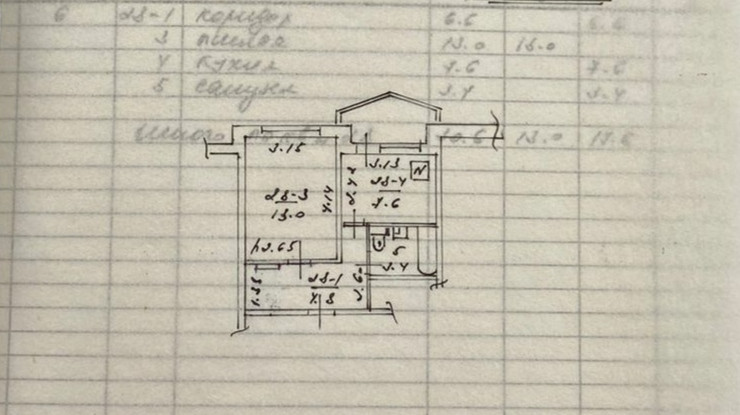 6 28-1 коридор 6.6 6.6
3 жилая 13.0 13.0
4 кухня 7.6 7.6
5 санузл 3.4 3.4
13.0
3.15
3.13
28-4
7.6
N
28-3
13.0
4.14
h2.65
5
3.4
28-1
1.35